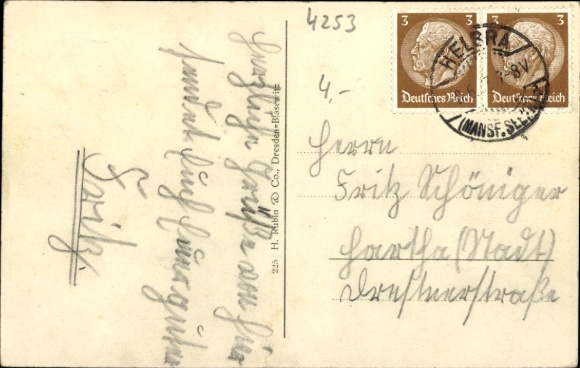 4253
3 3
Deutsches Reich Deutsches Reich
HELBRA
-8V
(MANSF. SEEKR.)
4,-
Herzliche Grüße von hier
sendet Euch Euer guter
Fritz.
225 H. Rubin & Co., Dresden-Blasewitz
Herrn
Fritz Schöniger
Hartha (Stadt)
Dresdnerstraße